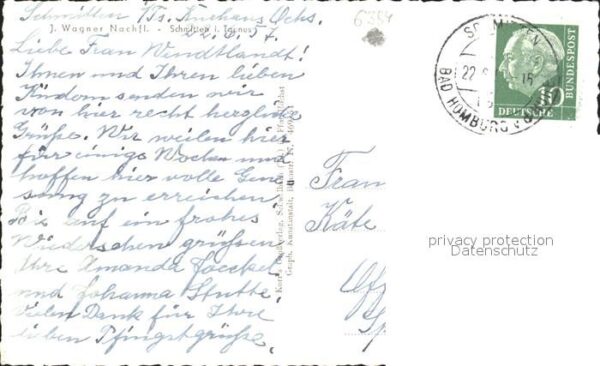 Schmitten /Ts. Kurhaus Ochs.
J. Wagner Nachfl. - Schmitten i. Taunus
57.
Liebe Frau Windtlandt!
Ihnen und Ihren lieben
Kindern senden wir
von hier recht herzliche
Grüße. Wir weilen hier
für einige Wochen und
hoffen hier volle Gene
sung zu erreichen.
Bis auf ein frohes
Wiedersehen grüßen
Ihre Amanda
und Johanna Stutte.
Vielen Dank für Ihre
lieben Pfingstgrüße.
6384
SCHMITTEN
22
BAD HOMBURG v
10
DEUTSCHE
BUNDESPOST
Frau
Käte
privacy protection
Datenschutz